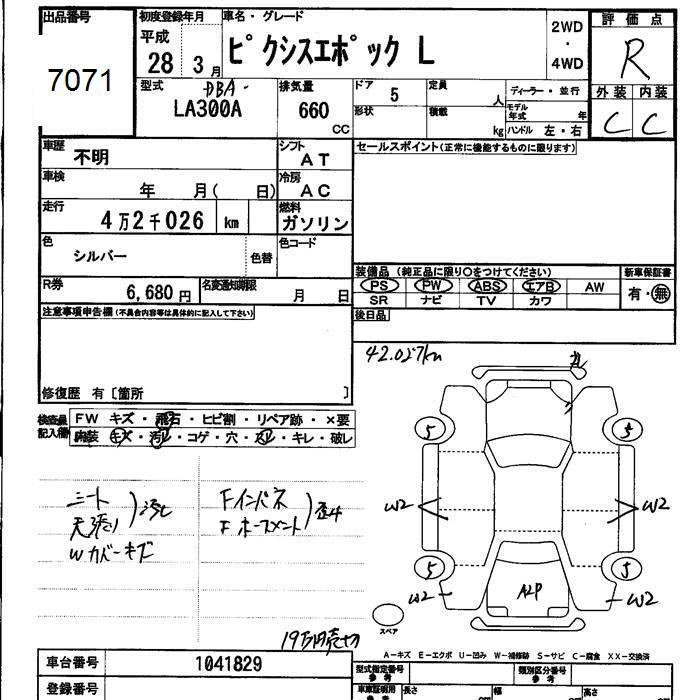 出品番号
7071
初度登録年月
平成
28 3月
車名・グレード
ピクシスエポック L
2WD
・
4WD
評価点
R
外装 内装
C C
型式
DBA-
LA300A
排気量
660
CC
ドア 5
形状
定員 人
積載 kg
ディーラー・並行
モデル年式 年
ハンドル 左・右
車歴
不明
シフト
AT
セールスポイント(正常に機能するものに限ります)
車検
年 月( 日)
冷房
AC
走行
4万2千026 km
燃料
ガソリン
色
シルバー
色替
色コード
装備品 (純正品に限り○をつけてください)
新車保証書
PS PW ABS エアB AW
有・無
SR ナビ TV カワ
R券
6,680円
名変通知期限
月 日
後日品
注意事項申告欄(不具合内容等は具体的に記入して下さい)
42.027km
修復歴 有〔箇所 〕
検査員記入欄
FW キズ・飛石・ヒビ割・リペア跡・×要
内装 キズ・汚レ・コゲ・穴・スレ・キレ・破レ
5 5
W2 W2
5 5
W2 W2
A2P
シート
天張り
汚れ
Wカバーキズ
Fインパネ
歪み
スペア
19万円売切
A-キズ E-エクボ U-凹み W-補修跡 S-サビ C-腐食 XX-交換済
車台番号
1041829
型式指定番号
参考
類別区分番号
参考
登録番号
車庫証明用
参考
長さ
幅
高さ
cm
cm